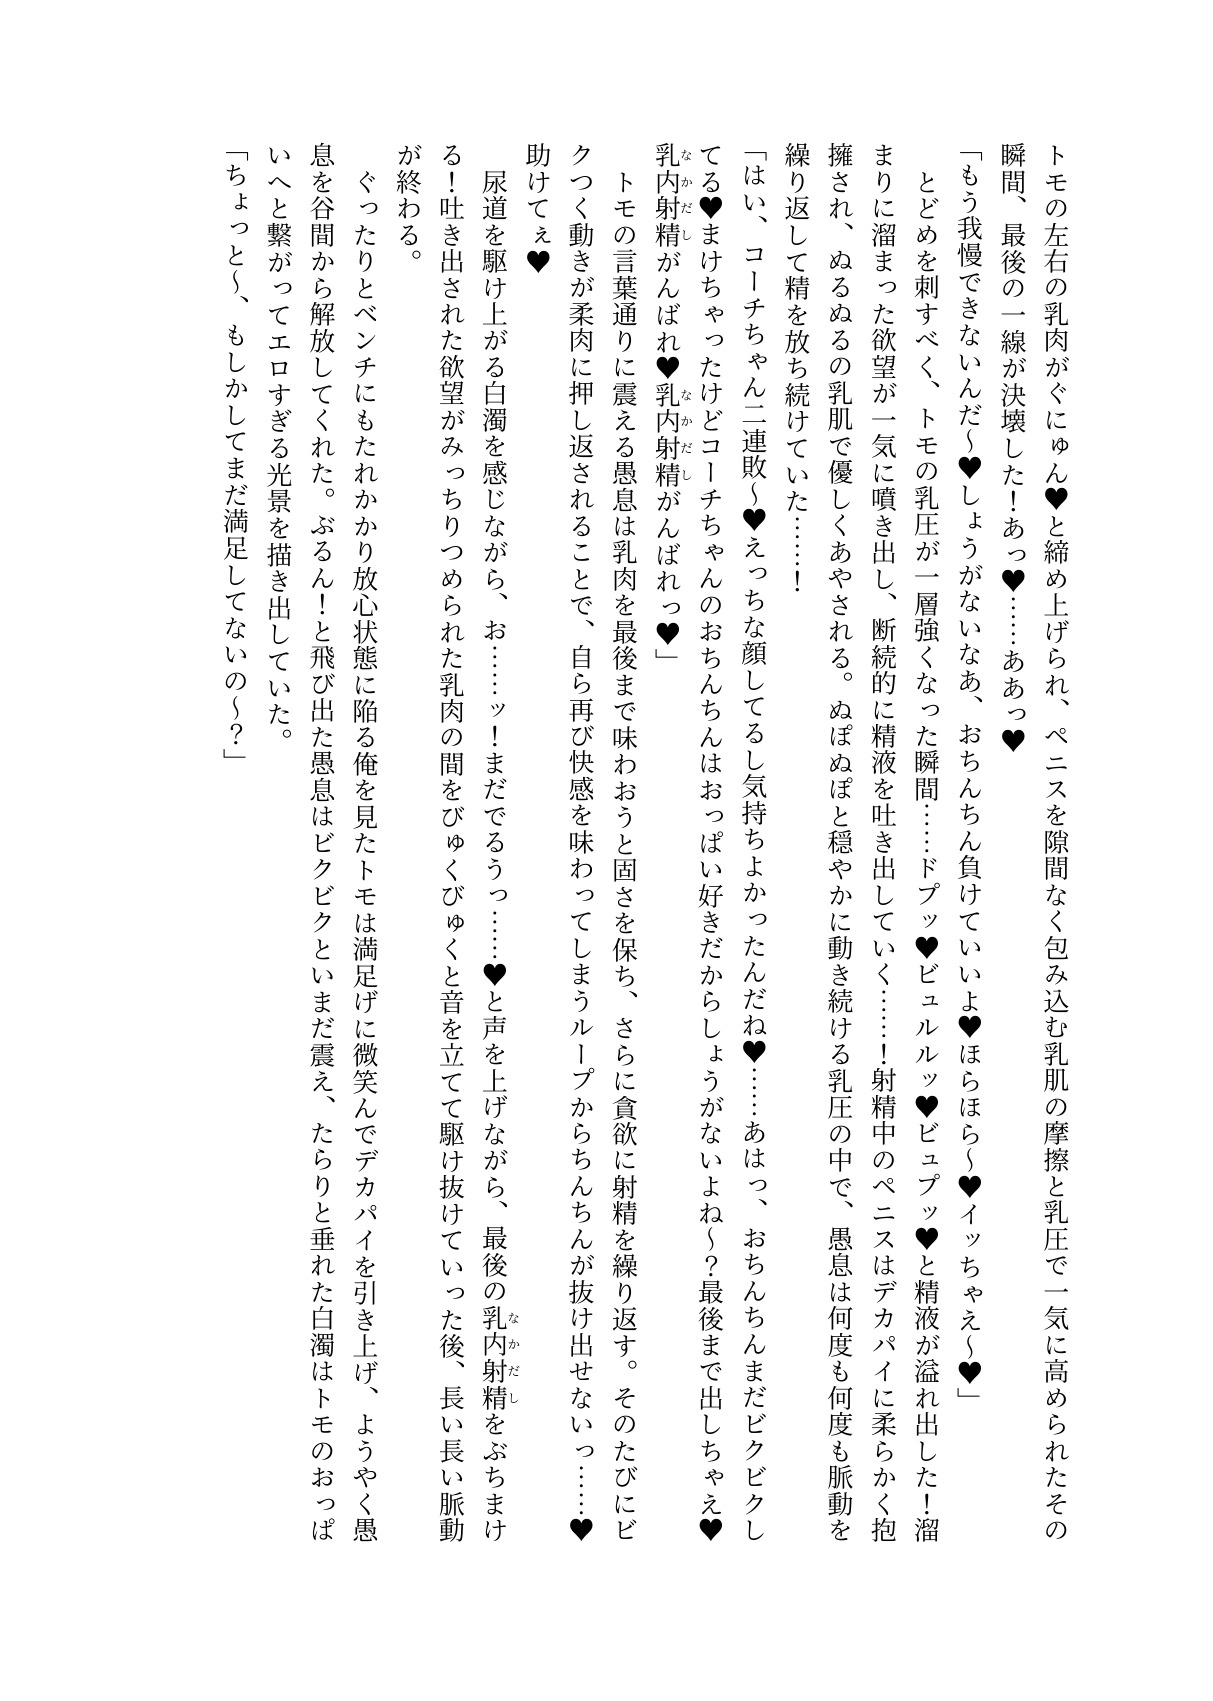 トモの左右の乳肉がぐにゅん♥と締め上げられ、ペニスを隙間なく包み込む乳肌の摩擦と乳圧で一気に高められたその
瞬間、最後の一線が決壊した！あっ♥……ああっ♥
「もう我慢できないんだ〜♥しょうがないなあ、おちんちん負けていいよ♥ほらほら〜♥イッちゃえ〜♥」
　とどめを刺すべく、トモの乳圧が一層強くなった瞬間……ドプッ♥ビュルルッ♥ビュプッ♥と精液が溢れ出した！溜
まりに溜まった欲望が一気に噴き出し、断続的に精液を吐き出していく……！射精中のペニスはデカパイに柔らかく抱
擁され、ぬるぬるの乳肌で優しくあやされる。ぬぽぬぽと穏やかに動き続ける乳圧の中で、愚息は何度も何度も脈動を
繰り返して精を放ち続けていた……！
「はい、コーチちゃん二連敗〜♥えっちな顔してるし気持ちよかったんだね♥……あはっ、おちんちんまだビクビクし
てる♥まけちゃったけどコーチちゃんのおちんちんはおっぱい好きだからしょうがないよね〜？最後まで出しちゃえ♥
乳内射精がんばれ♥乳内射精がんばれっ♥」
　トモの言葉通りに震える愚息は乳肉を最後まで味わおうと固さを保ち、さらに貪欲に射精を繰り返す。そのたびにビ
クつく動きが柔肉に押し返されることで、自ら再び快感を味わってしまうループからちんちんが抜け出せないっ……♥
助けてぇ♥
　尿道を駆け上がる白濁を感じながら、お……ッ！まだでるうっ……♥と声を上げながら、最後の乳内射精をぶちまけ
る！吐き出された欲望がみっちりつめられた乳肉の間をびゅくびゅくと音を立てて駆け抜けていった後、長い長い脈動
が終わる。
　ぐったりとベンチにもたれかかり放心状態に陥る俺を見たトモは満足げに微笑んでデカパイを引き上げ、ようやく愚
息を谷間から解放してくれた。ぶるん！と飛び出た愚息はビクビクといまだ震え、たらりと垂れた白濁はトモのおっぱ
いへと繋がってエロすぎる光景を描き出していた。
「ちょっと〜、もしかしてまだ満足してないの〜？」